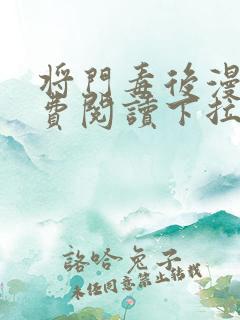 將門毒後漫
費閱讀下拉
詻哈兔子
未经同意禁止转载